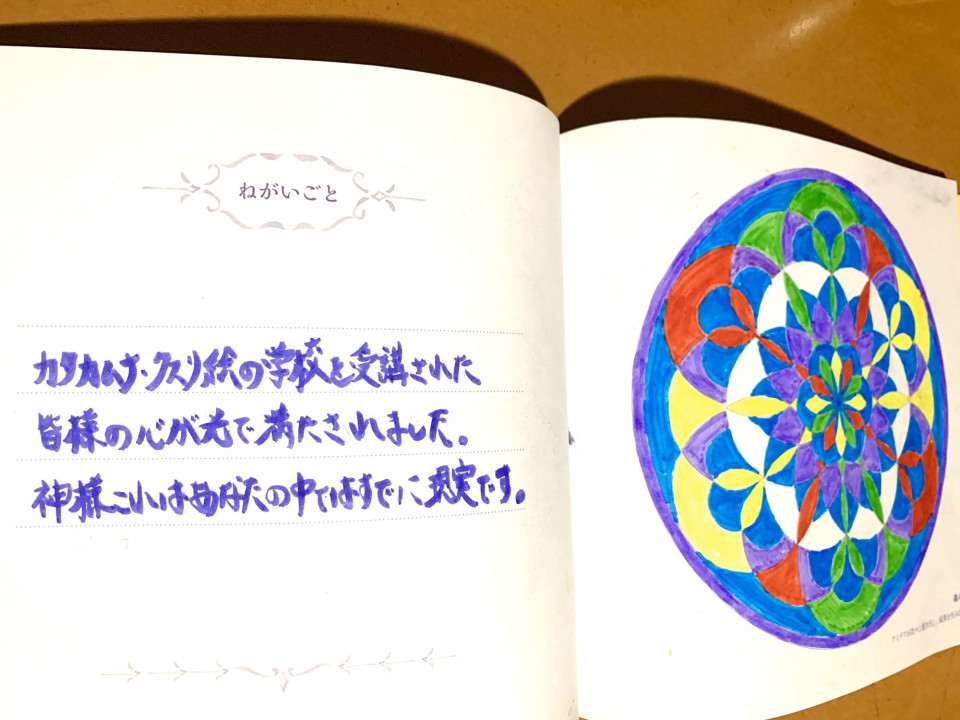 ねがいごと
カタカムナ・クスリ絵の学校を受講された
皆様の心が光で満たされました。
神様これはあなたの中ではすでに現実です。